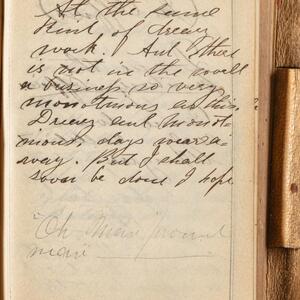 At the same
kind of dreary
work. And there
is not in the world
a business so very
monotinous as this
Dreary and monot-
inous, days wear a-
way. But I shall
soon be done I hope
"Oh Man, proud
man"